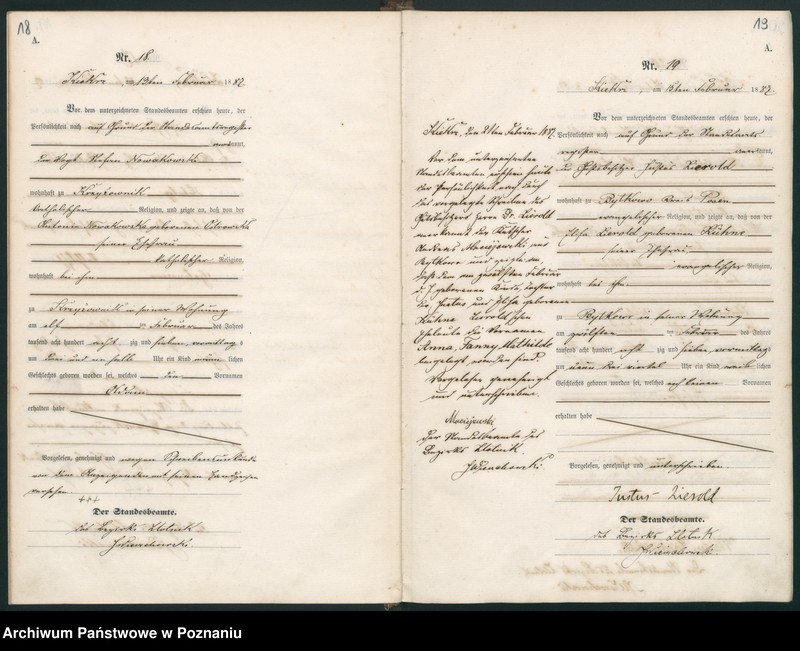 18
A.
Nr. 18
Kiekrz, am 13ten Februar 1887
Vor dem unterzeichneten Standesbeamten erschien heute, der
Persönlichkeit nach auf Grund der
kannt,
der Vogt Stefan Nowakowski
wohnhaft zu Krzyżownik
katholischer Religion, und zeigte an, daß von der
Nowakowska geborenen Ostrowska
seiner Ehefrau
katholischer Religion,
wohnhaft bei ihm
zu Krzyżownik in seiner Wohnung
am elf ten Februar des Jahres
tausend acht hundert acht zig und sieben vormittags
um drei und ein halb Uhr ein Kind männ lichen
Geschlechts geboren worden sei, welches den Vornamen
erhalten habe
Vorgelesen, genehmigt und wegen Schreibensunkunde
von dem Anzeigenden mit seinem Handzeichen
versehen.
+++
Der Standesbeamte.
des Bezirks Zlotnik
19
A.
Nr. 19
Kiekrz, am 13ten Februar 1887
Vor dem unterzeichneten Standesbeamten erschien heute, der
Persönlichkeit nach auf Grund der Standesamts
register kannt,
der Gutsbesitzer Justus Zierold
wohnhaft zu Bytkowo Kreis Posen
evangelischer Religion, und zeigte an, daß von der
Zierold geborenen Kühne
seiner Ehefrau
evangelischer Religion,
wohnhaft bei ihm
zu Bytkowo in seiner Wohnung
am zwölften ten Februar des Jahres
tausend acht hundert acht zig und sieben vormittags
um neun drei viertel Uhr ein Kind weib lichen
Geschlechts geboren worden sei, welches noch keinen Vornamen
erhalten habe
Vorgelesen, genehmigt und unterschrieben.
Justus Zierold
Der Standesbeamte.
des Bezirks Zlotnik
Kiekrz, den
Vor dem unterzeichneten
Standesbeamten erschien heute
der Persönlichkeit nach durch
das vorgelegte Schreiben des
Gutsbesitzers Herrn Zierold
anerkannt der
Andreas Maciejewski aus
Bytkowo und zeigte an,
daß dem am zwölften Februar
d. J. geborenen Kinde, Tochter
der Justus und geborenen
Kühne Zierold'schen
Eheleute die Vornamen
Anna, Fanny, Mathilde
beigelegt worden sind.
Vorgelesen genehmigt
und unterschrieben.
Maciejewski
Der Standesbeamte des
Bezirks Zlotnik.
Archiwum Państwowe w Poznaniu